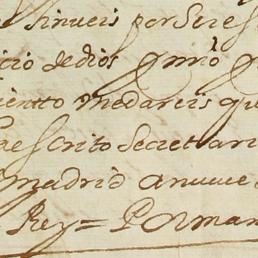 sinueis por ser es
icio de dios Mio
iento me dareis que
ra escrito Secretari
madrid a nueue
Rey = Por man